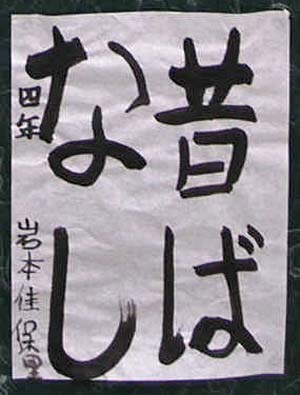 昔ば
なし
四年 岩本佳保里